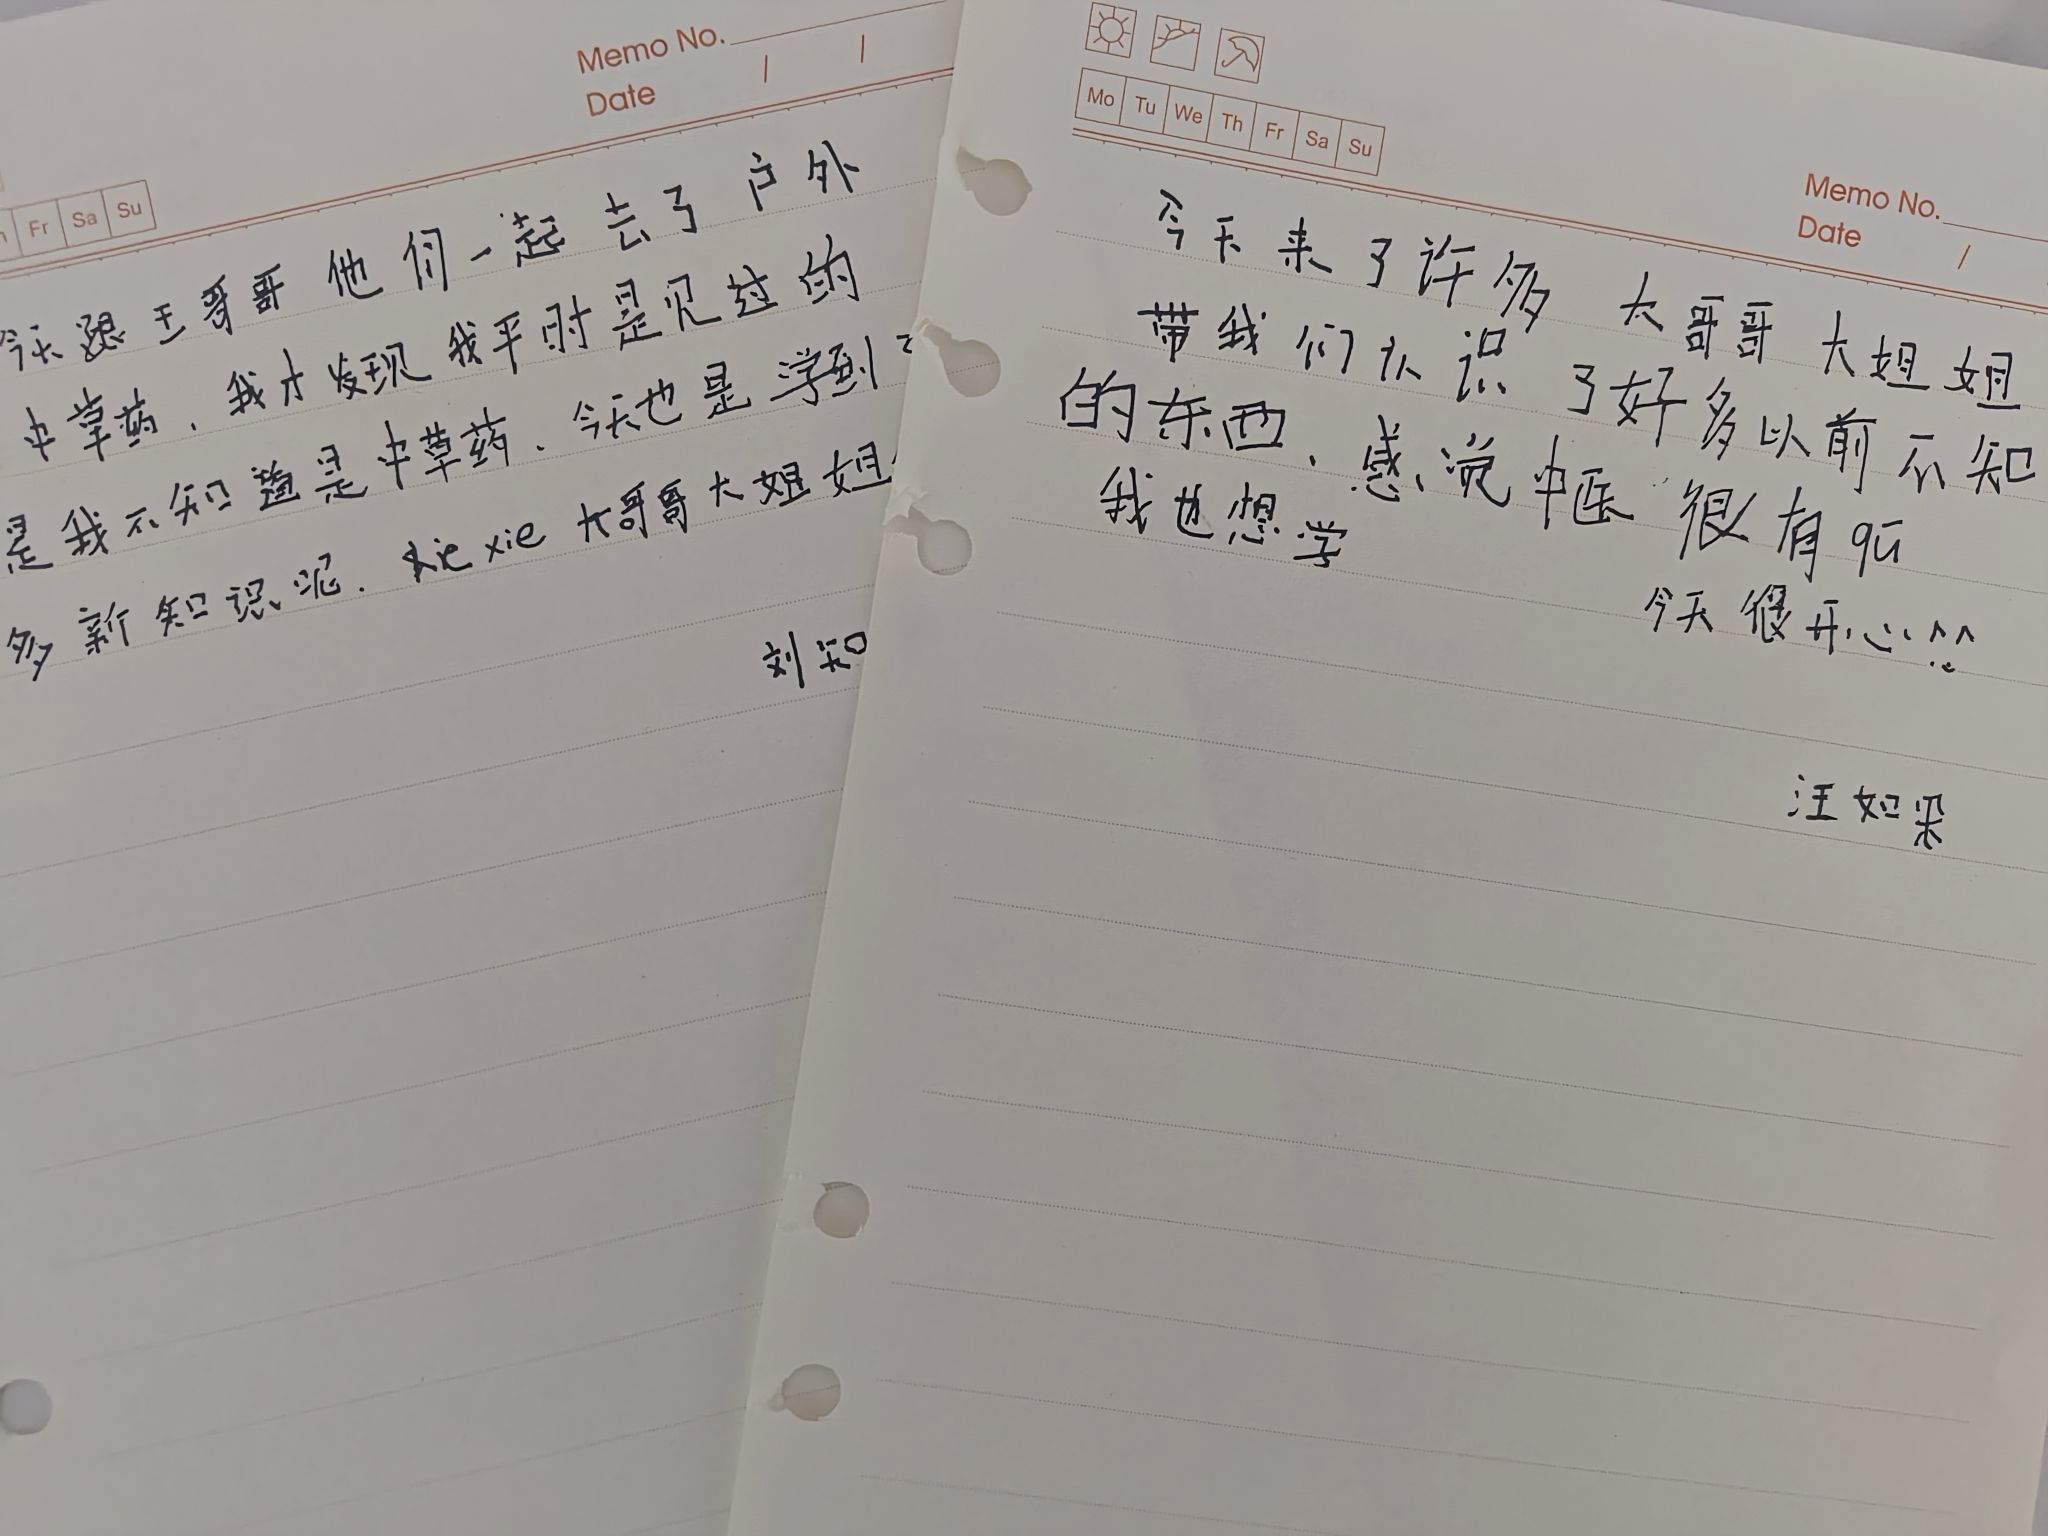 Memo No.
Date / /
Fr Sa Su
今天跟王哥哥他们一起去了户外
中草药,我才发现我平时是见过的
是我不知道是中草药.今天也是学到了
多新知识呢.xie xie大哥哥大姐姐
刘知
Mo Tu We Th Fr Sa Su
Memo No.
Date /
今天来了许多大哥哥大姐姐
带我们认识了好多以前不知
的东西、感觉中医很有qu
我也想学
今天很开心
汪如